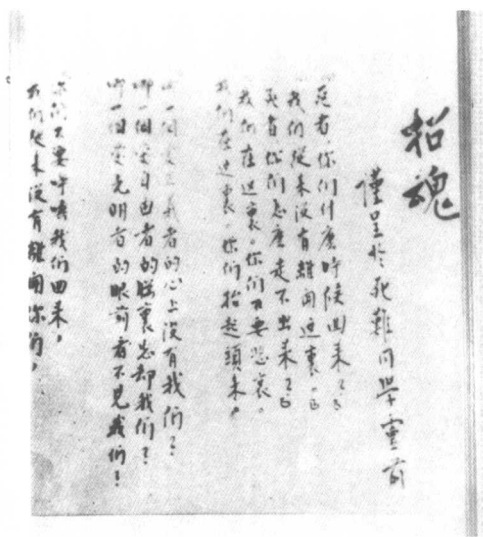 招魂
僅呈於死難同學靈前
死者，你们什麼时候回来？
我们從来没有離開这裏。
死者，你们怎麼走不出来？
我们在这裏。你们不要悲哀。
我们在这裏。你们抬起頭来。
一個愛正義者的心上没有我们？
哪一個愛自由者的腦裏忘却我们？
哪一個愛光明者的眼前看不見我们？
你们不要呼喚我们回来，
我们從来没有離開你们，